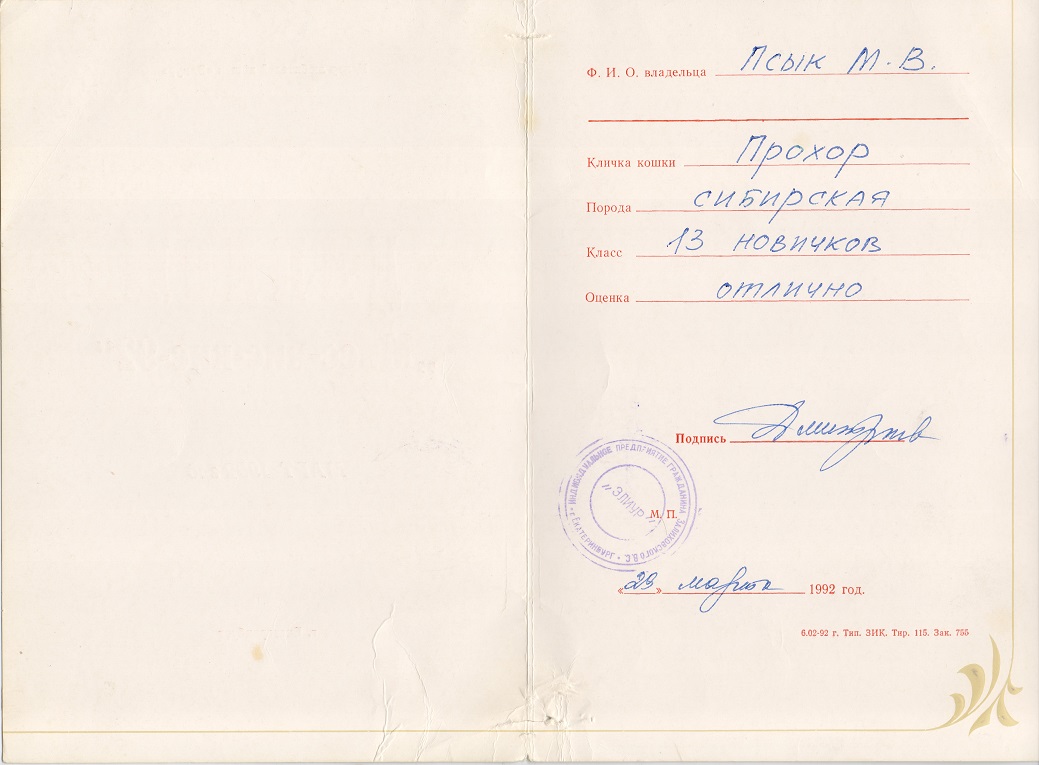 Ф. И. О. владельца Псык М. В.
Кличка кошки Прохор
Порода сибирская
Класс 13 новичков
Оценка отлично
Подпись
ИНДИВИДУАЛЬНОЕ ПРЕДПРИЯТИЕ ГРАЖДАНИНА
г. ЕКАТЕРИНБУРГ
"ЭЛИУР"
М. П.
«29» марта 1992 год.
6.02-92 г. Тип. ЗИК. Тир. 115. Зак. 755